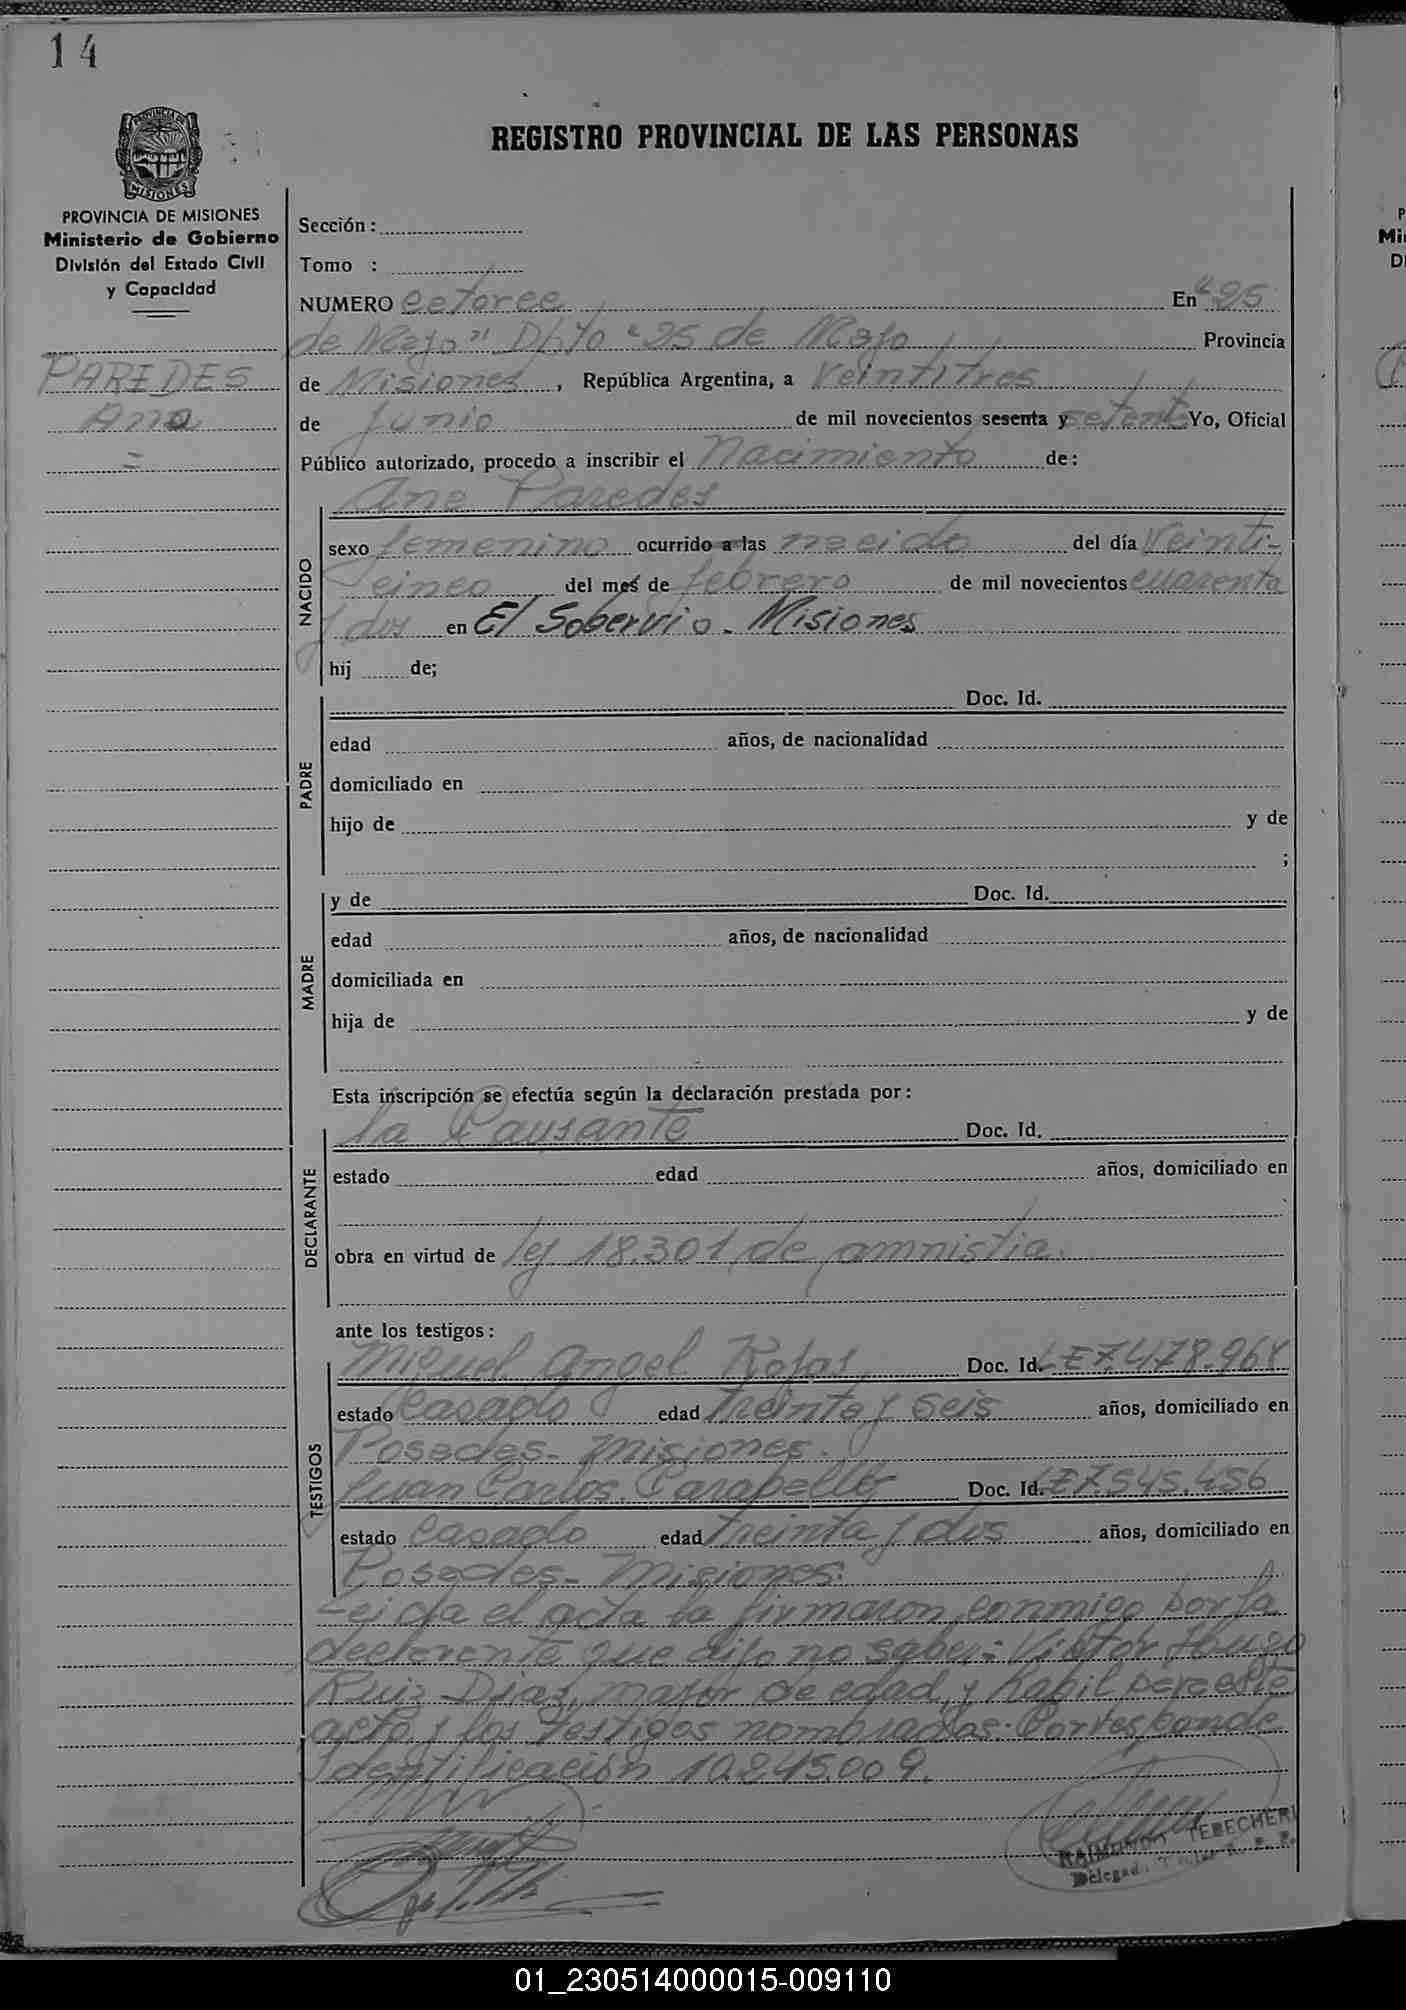 14
PROVINCIA DE MISIONES
REGISTRO PROVINCIAL DE LAS PERSONAS
PROVINCIA DE MISIONES
Ministerio de Gobierno
División del Estado Civil
y Capacidad
PAREDES
Ana
=
Sección:
Tomo :
NUMERO catorce En "25
de Mayo" Dpto "25 de Mayo Provincia
de Misiones, República Argentina, a Veintitres
de Junio de mil novecientos sesenta y setenta Yo, Oficial
Público autorizado, procedo a inscribir el Nacimiento de:
Ana Paredes
NACIDO
sexo femenino ocurrido a las nacido del día Veinti-
cinco del mes de febrero de mil novecientos cuarenta
y dos en El Sobervio - Misiones
hij de;
PADRE
Doc. Id.
edad años, de nacionalidad
domiciliado en
hijo de y de
;
MADRE
y de Doc. Id.
edad años, de nacionalidad
domiciliada en
hija de y de
Esta inscripción se efectúa según la declaración prestada por:
DECLARANTE
la Causante Doc. Id.
estado edad años, domiciliado en
obra en virtud de ley 18.301 de amnistia.
ante los testigos:
TESTIGOS
Miguel Angel Rojas Doc. Id. LE 7.478.968
estado Casado edad treinta y seis años, domiciliado en
Posadas - Misiones.
Juan Carlos Carabello Doc. Id. LE 7.545.456
estado Casado edad treinta y dos años, domiciliado en
Posadas - Misiones.
Leida el acta la firmaron conmigo por la
declarante que dijo no saber: Victor Hugo
Ruiz Diaz, mayor de edad y habil para este
acto y los testigos nombrados. Corresponde
Identificación 10.845.009.
RAIMUNDO TEBECHERI
Delegado
P
Mi
D
01_230514000015-009110